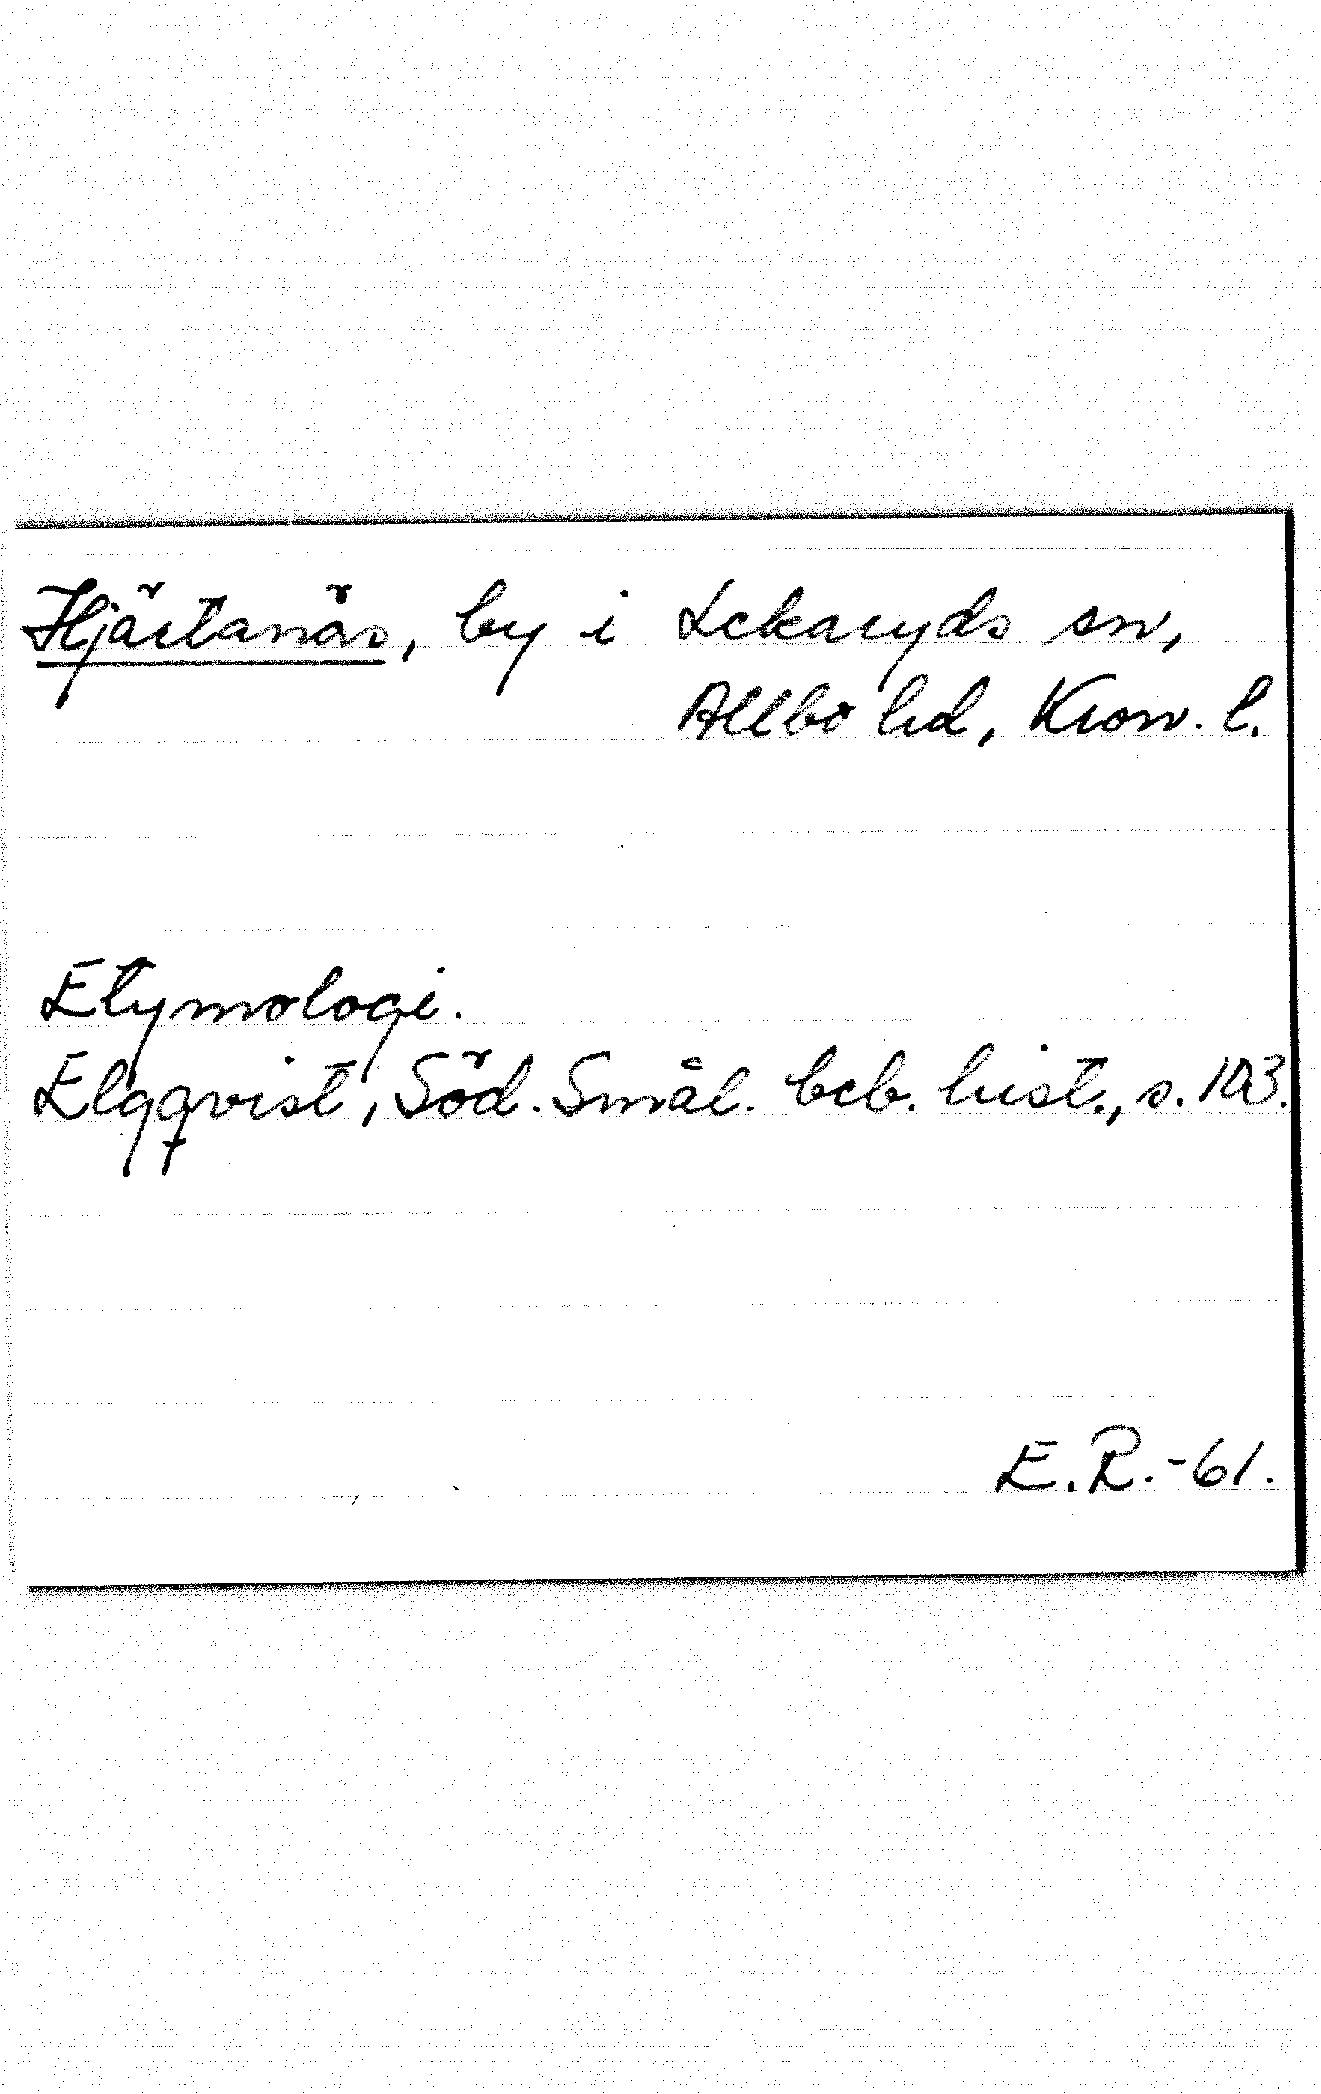 Hjärtanäs, by i Lekaryds sn,
Allbo hd, Kron. l.
Etymologi.
Elgqvist, Söd. Smål. beb. hist., s. 103.
E.R.-61.